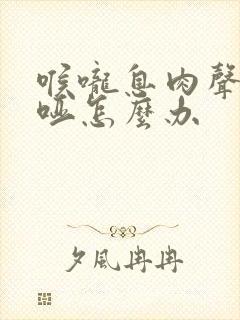 喉嚨息肉聲
啞怎麼办
夕風冉冉